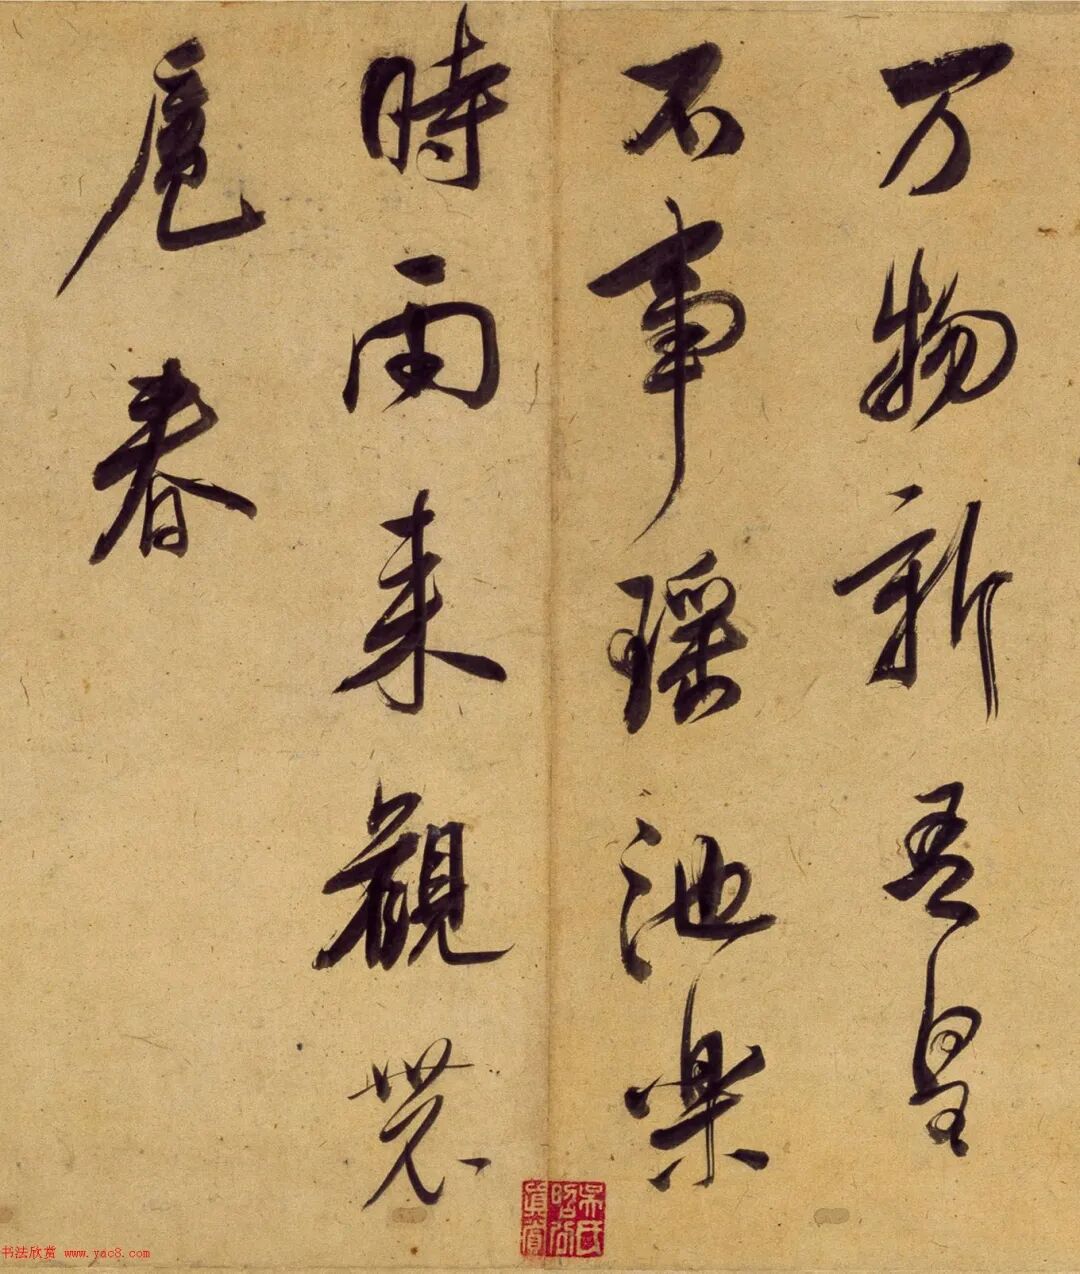 万物新吾皇
不事瑶池樂
時雨来觀農
扈春
书法欣赏 www.yac8.com